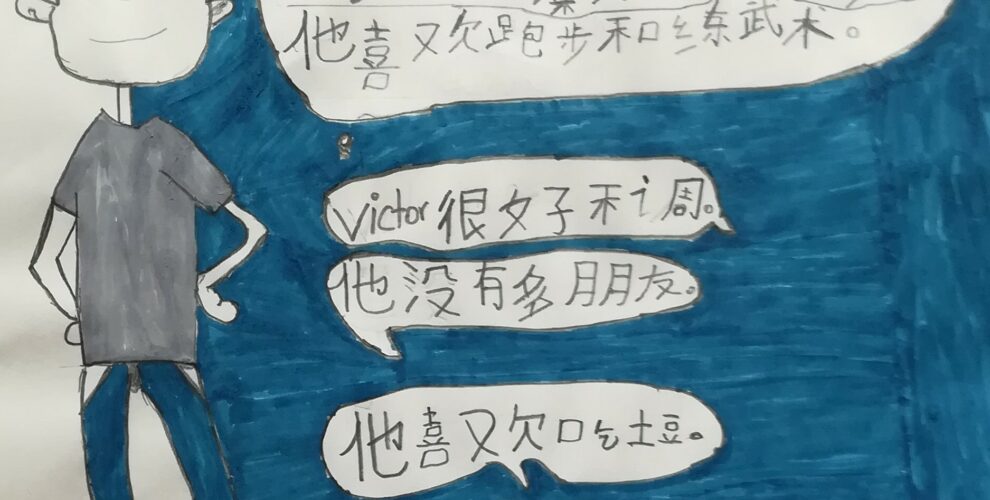 他喜欢跑步和练武术。
Victor很好和调。
他没有多朋友。
他喜欢吃土豆。